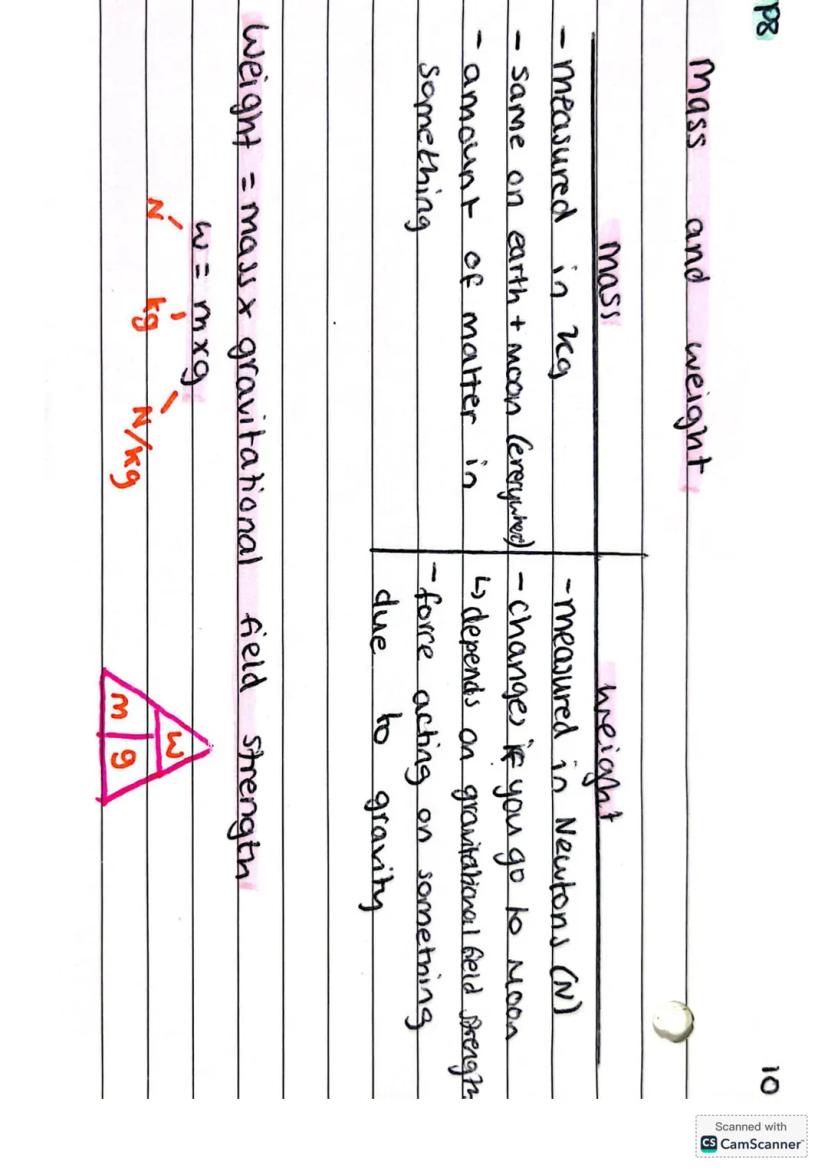 P8
10
Mass and weight
mass
- measured in kg
- same on earth + moon (everywhere)
- amount of matter in
something
weight
- measured in Newtons (N)
- changes if you go to Moon
↳ depends on gravitational field strength
- force acting on something
due to gravity
Weight = mass x gravitational field strength
w = m x g
N
kg
N/kg
w
m
g
Scanned with
CS CamScanner